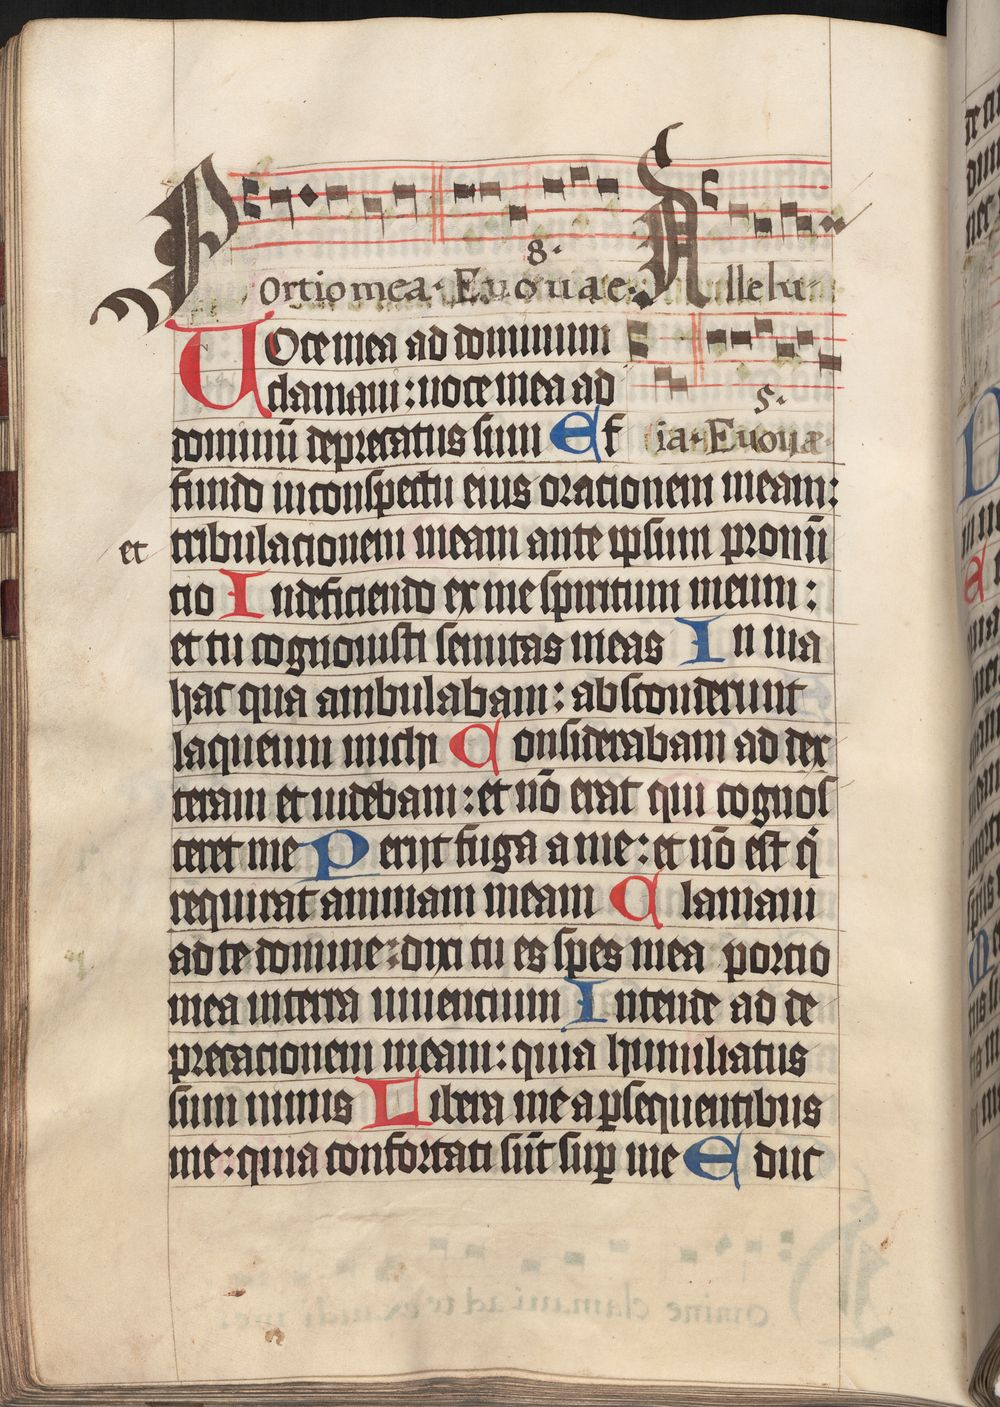 8.
Portio mea. Euouae. Allelu-
UOce mea ad dominum
clamaui: uoce mea ad
5.
dominū deprecatus sum Ef
ia. Euouæ
fundo in conspectu eius orationem meam:
et tribulationem meam ante ipsum pronū
cio In deficiendo ex me spiritum meum:
et tu cognouisti semitas meas In uia
hac qua ambulabam: absconderunt
laqueum michi Considerabam ad dex
teram et uidebam: et nō erat qui cognos
ceret me Perijt fuga a me: et nō est q̄
requirat animam meam Clamaui
ad te domine: dixi tu es spes mea portio
mea in terra uiuentium Intende ad de
precationem meam: quia humiliatus
sum nimis Libera me a ꝑsequentibus
me: quia confortati sūt suꝑ me Educ